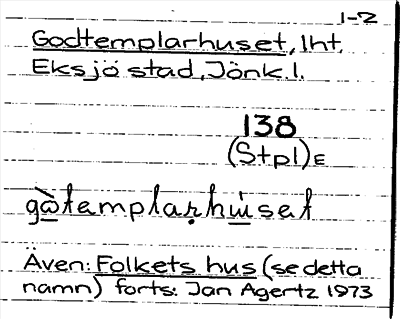 1-2
Godtemplarhuset, lht.
Eksjö stad, Jönk. l.
138
(Stpl)E
gòtemplaṛhu̇set
Även: Folkets hus (se detta
namn) forts: Jan Agertz 1973